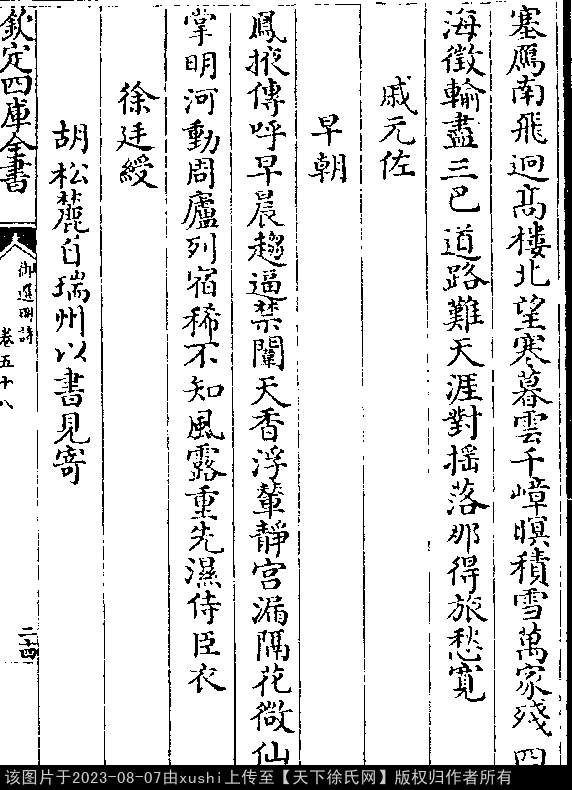 塞鴈南飛迥高樓北望寒暮雲千嶂暝積雪萬家殘四
海徵輸盡三巴道路難天涯對揺落那得旅愁寛
戚元佐
早朝
鳳掖傳呼早晨趨逼禁闈天香浮輦靜宫漏隔花微仙
掌明河動周廬列宿稀不知風露重先濕侍臣衣
徐廷綬
胡松麓自瑞州以書見寄
欽定四庫全書
御選明詩
卷五十八
二十四
该图片于2023-08-07由xushi上传至【天下徐氏网】版权归作者所有